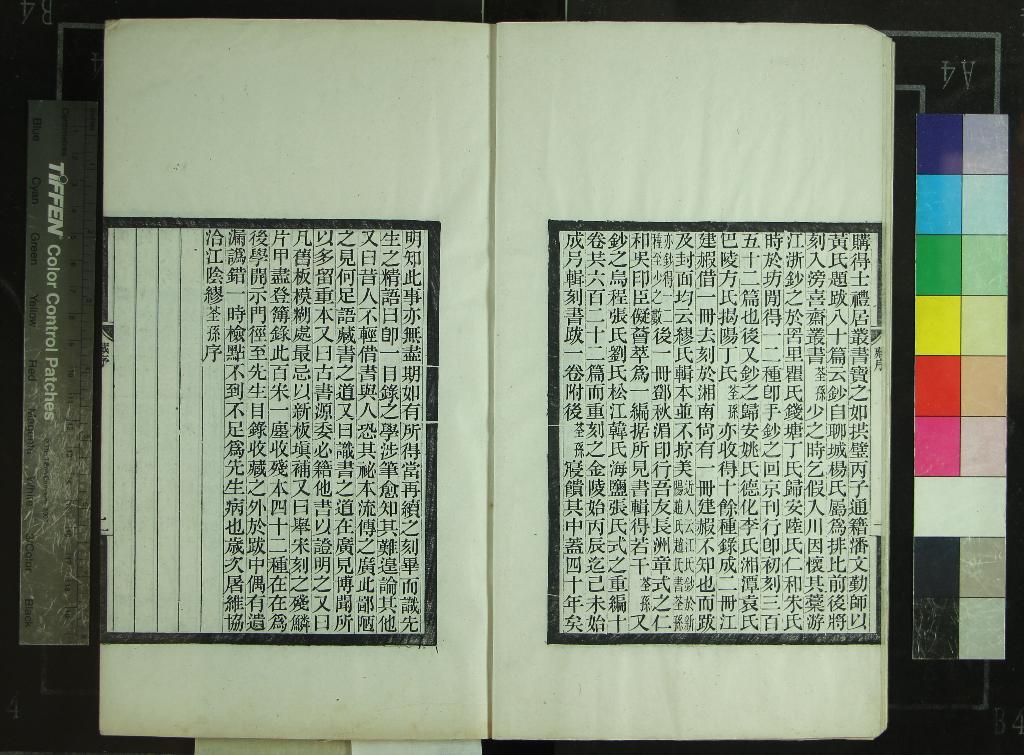 購得士禮居叢書寶之如拱璧丙子通籍潘文勤師以
黃氏題跋八十篇云鈔自聊城楊氏屬為排比前後將
刻入滂喜齋叢書荃孫少之時乞假入川因懷其藁游
江浙鈔之於罟里瞿氏錢塘丁氏歸安陸氏仁和朱氏
時於坊閒得一二種卽手鈔之回京刊行卽初刻三百
五十二篇也後又鈔之歸安姚氏德化李氏湘潭袁氏
巴陵方氏揭陽丁氏荃孫亦收得十餘種錄成二冊江
建霞借一冊去刻於湘南尙有一冊建霞不知也而跋
及封面均云繆氏輯本並不掠美近人云江氏鈔於新陽趙氏趙氏書荃孫
亦鈔得一二種至少之數後一冊鄧秋湄印行吾友長洲章式之仁
和吳印臣儗薈萃為一編据所見書輯得若干荃孫又
鈔之烏程張氏劉氏松江韓氏海鹽張氏式之重編十
卷共六百二十二篇而重刻之金陵始丙辰迄己未始
成另輯刻書跋一卷附後荃孫寢饋其中蓋四十年矣
明知此事亦無盡期如有所得當再續之刻畢而識先
生之精語曰卽一目錄之學涉筆愈知其難遑論其他
又曰昔人不輕借書與人恐其祕本流傳之廣此鄙陋
之見何足語藏書之道又曰識書之道在廣見博聞所
以多留重本又曰古書源委必籍他書以證明之又曰
凡舊板模糊處最忌以新板塡補又曰舉宋刻之殘鱗
片甲盡登簿錄此百宋一廛收殘本四十二種在在為
後學開示門徑至先生目錄收藏之外於跋中偶有遺
漏譌錯一時檢點不到不足為先生病也歲次屠維協
洽江陰繆荃孫序
二
TIFFEN Color Control Patches
Blue
Cyan
Green
Yellow
Red
Magenta
White
3/Color
Black
A4
B4